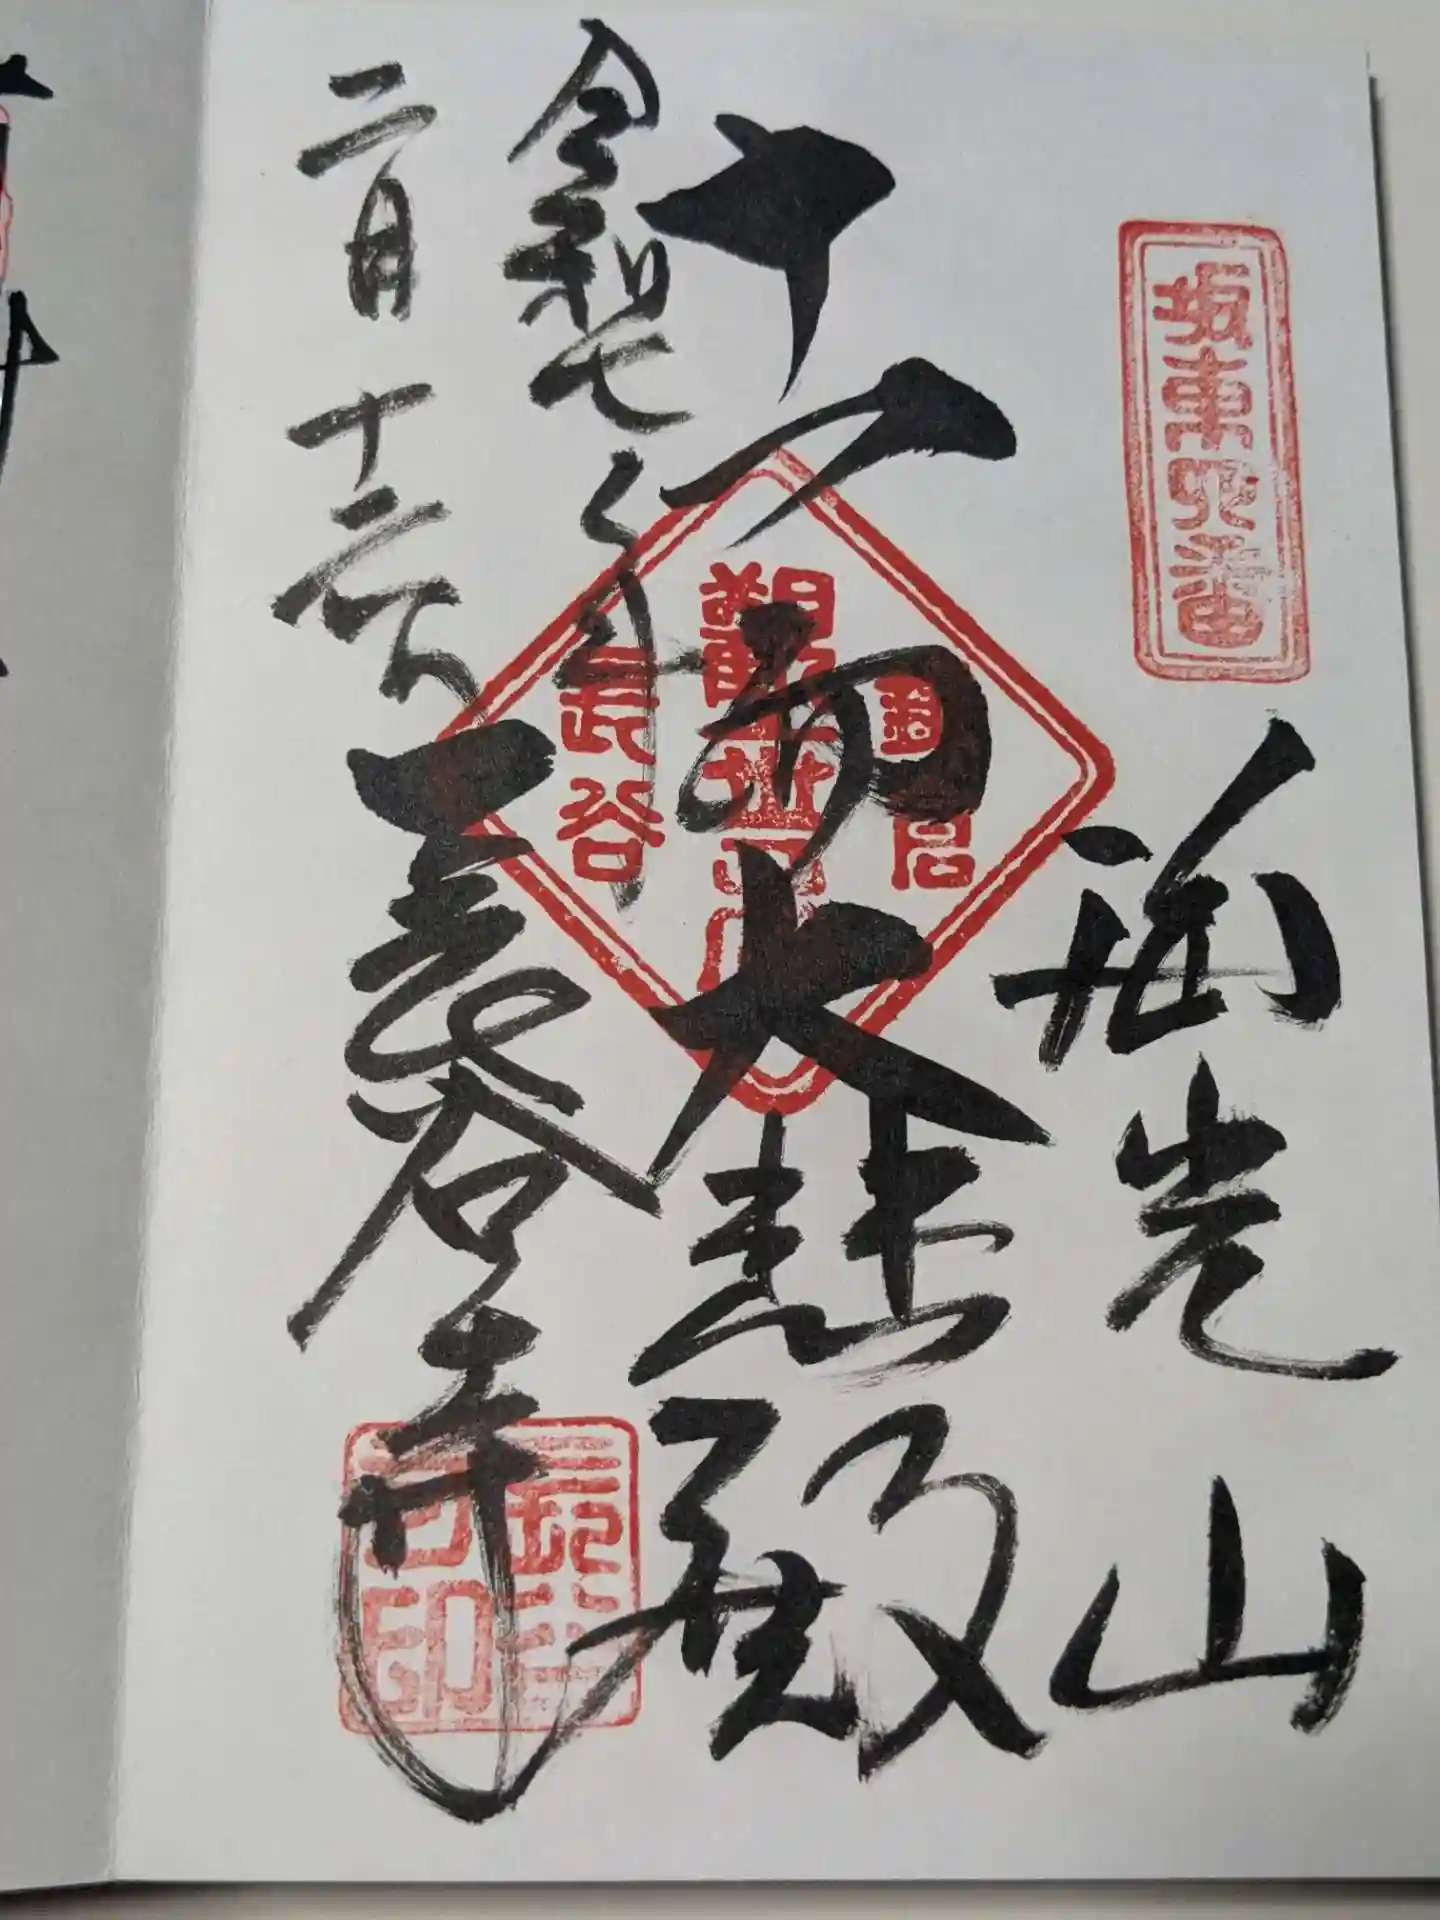 坂東四番
海光山
十一面大悲殿
長谷
令和七年
二月十六
長谷寺
長谷寺印